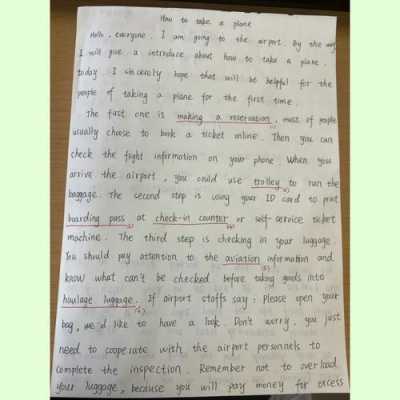 How to take a plane
Hello, everyone. I am going to the airport. By the way
I will give a introduce about how to take a plane.
today. I sincerely hope that will be helpful for the
people of taking a plane for the first time.
The first one is making a reservation, most of people
usually choose to book a ticket online. Then you can
check the flight information on your phone. When you
arrive the airport, you could use trolley to run the
baggage. The second step is using your ID card to print
boarding pass at check-in counter or self-service ticket
machine. The third step is checking in your luggage.
You should pay attention to the aviation information and
know what can't be checked before taking goods into
haulage luggage. If airport staffs say: Please open your
bag, we'd like to have a look. Don't worry, you just
need to cooperate with the airport personnels to
complete the inspection. Remember not to overload
your luggage, because you will pay money for excess